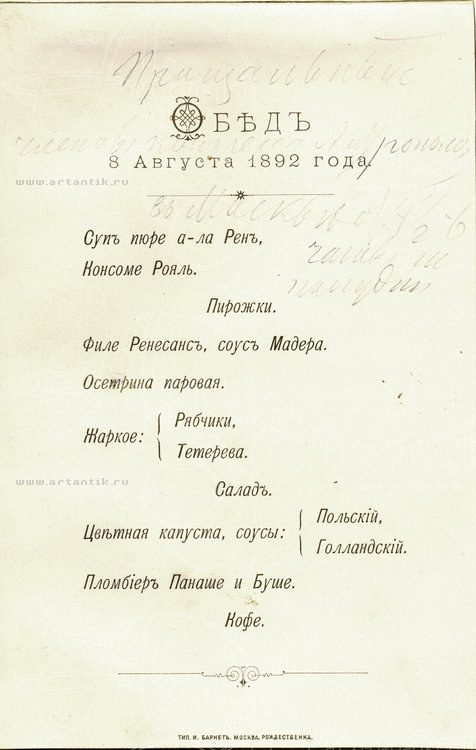 Прощальный
ОБѢДЪ
8 Августа 1892 года.
www.artantik.ru
въ Москвѣ
Супъ пюре а-ла Ренъ,
Консоме Рояль.
Пирожки.
Филе Ренесансъ, соусъ Мадера.
Осетрина паровая.
Жаркое: { Рябчики,
Тетерева.
www.artantik.ru
Саладъ.
Цвѣтная капуста, соусы: { Польскій,
Голландскій.
Пломбіеръ Панаше и Буше.
Кофе.
ТИП. И. БАРНЕТЪ. МОСКВА, РОЖДЕСТВЕНКА.